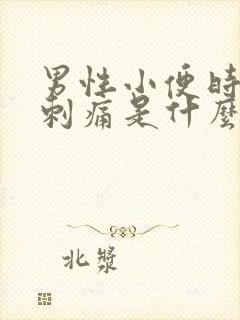 男性小便時
刺痛是什麼
北漿